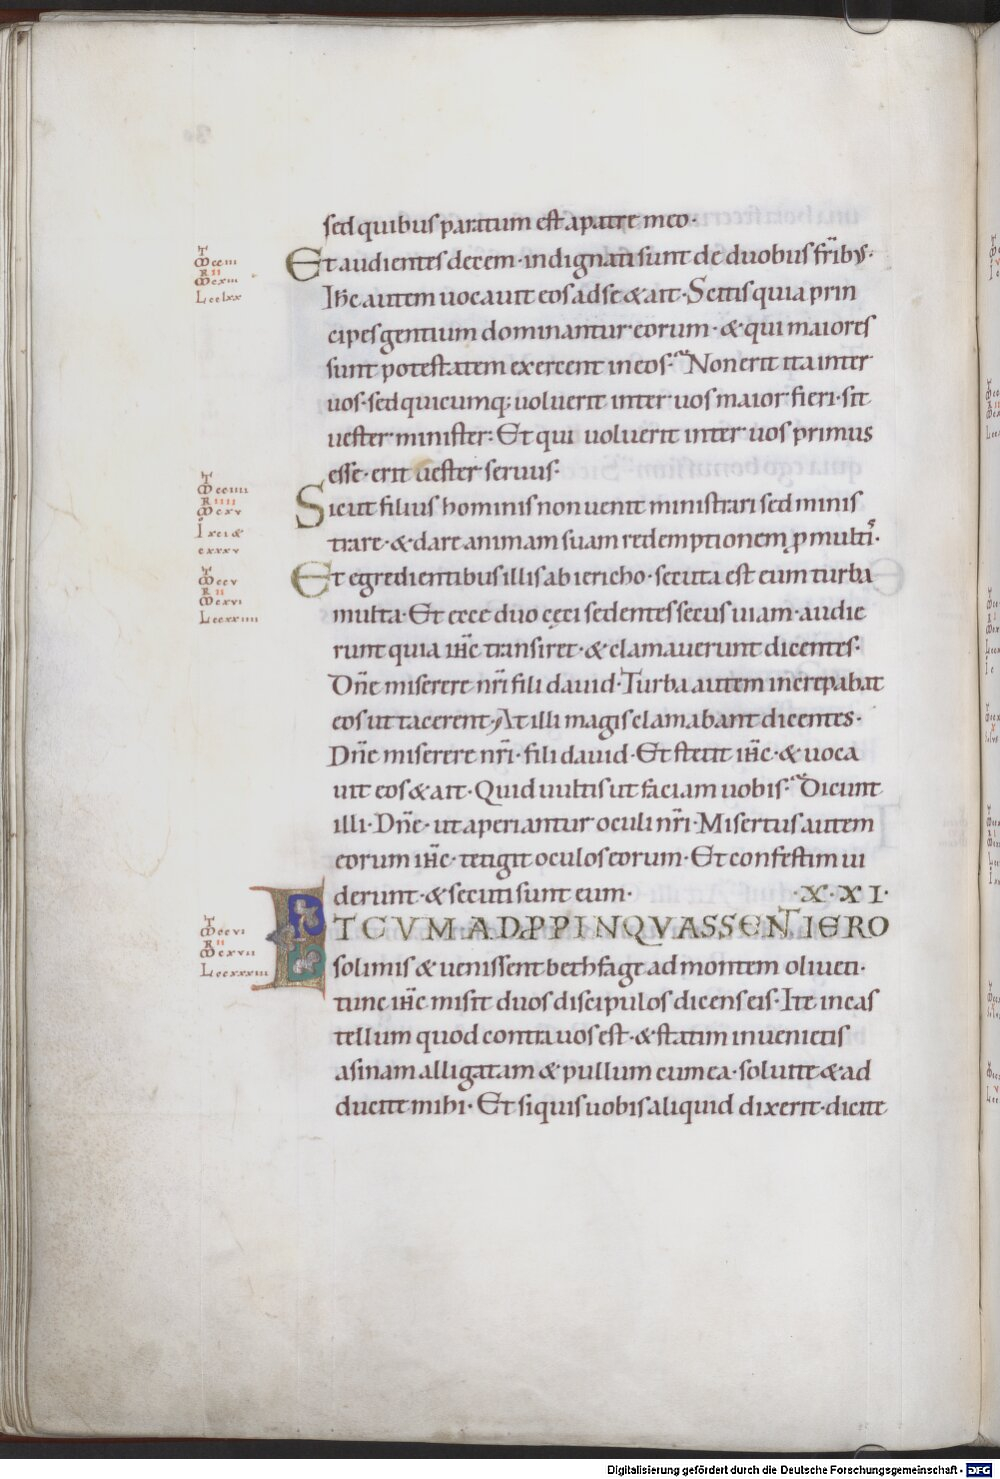 sed quibus paratum est a patre meo·
Et audientes decem· indignati sunt de duobus fr̄ibus·
Ih̄c autem uocauit eos ad se & ait· Scitis quia prin
cipes gentium dominantur eorum· & qui maiores
sunt potestatem exercent in eos· Non erit ita inter
uos· sed quicumq; uoluerit inter uos maior fieri· sit
uester minister· Et qui uoluerit inter uos primus
esse· erit uester seruus·
Sicut filius hominis non uenit ministrari sed minis
trare· & dare animam suam redemptionem ꝓ multis·
Et egredientibus illis ab iericho· secuta est eum turba
multa· Et ecce duo ceci sedentes secus uiam· audie
runt quia ih̄c transiret· & clamauerunt dicentes·
Dn̄e miserere nr̄i fili dauid· Turba autem increpabat
eos ut tacerent· At illi magis clamabant dicentes·
Dn̄e miserere nr̄i· fili dauid· Et stetit ih̄c· & uoca
uit eos & ait· Quid uultis ut faciam uobis· Dicunt
illi· Dn̄e· ut aperiantur oculi nr̄i· Misertus autem
eorum ih̄c· tetigit oculos eorum· Et confestim ui
derunt· & secuti sunt eum· ·X·XI·
ET CVM ADPPINQVASSENT IERO
solimis & uenissent bethfage ad montem oliueti·
tunc ih̄c misit duos discipulos dicens eis· Ite in cas
tellum quod contra uos est· & statim inuenietis
asinam alligatam & pullum cum ea· soluite & ad
ducite mihi· Et si quis uobis aliquid dixerit· dicite
Digitalisierung gefördert durch die Deutsche Forschungsgemeinschaft - DFG